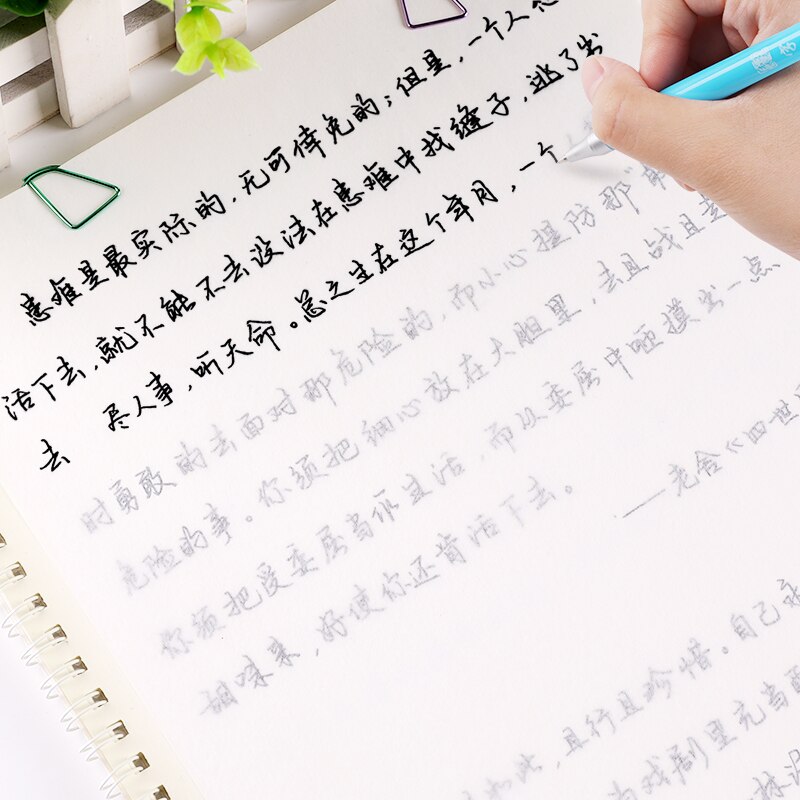 患难是最实际的,无可倖免的;但是,一个人想
活下去,就不能不去设法在患难中找缝子,逃了出
去 尽人事,听天命。总之生在这个年月,一个
时勇敢的去面对那危险的,而小心提防那“
危险的事。你须把细心放在大胆里,去且战且走
你须把受委屈当作生活,而从委屈中咂摸出一点
甜味来,好使你还肯活下去。
——老舍《四世
如此,且行且珍惜。自己
戏剧里充当配
林